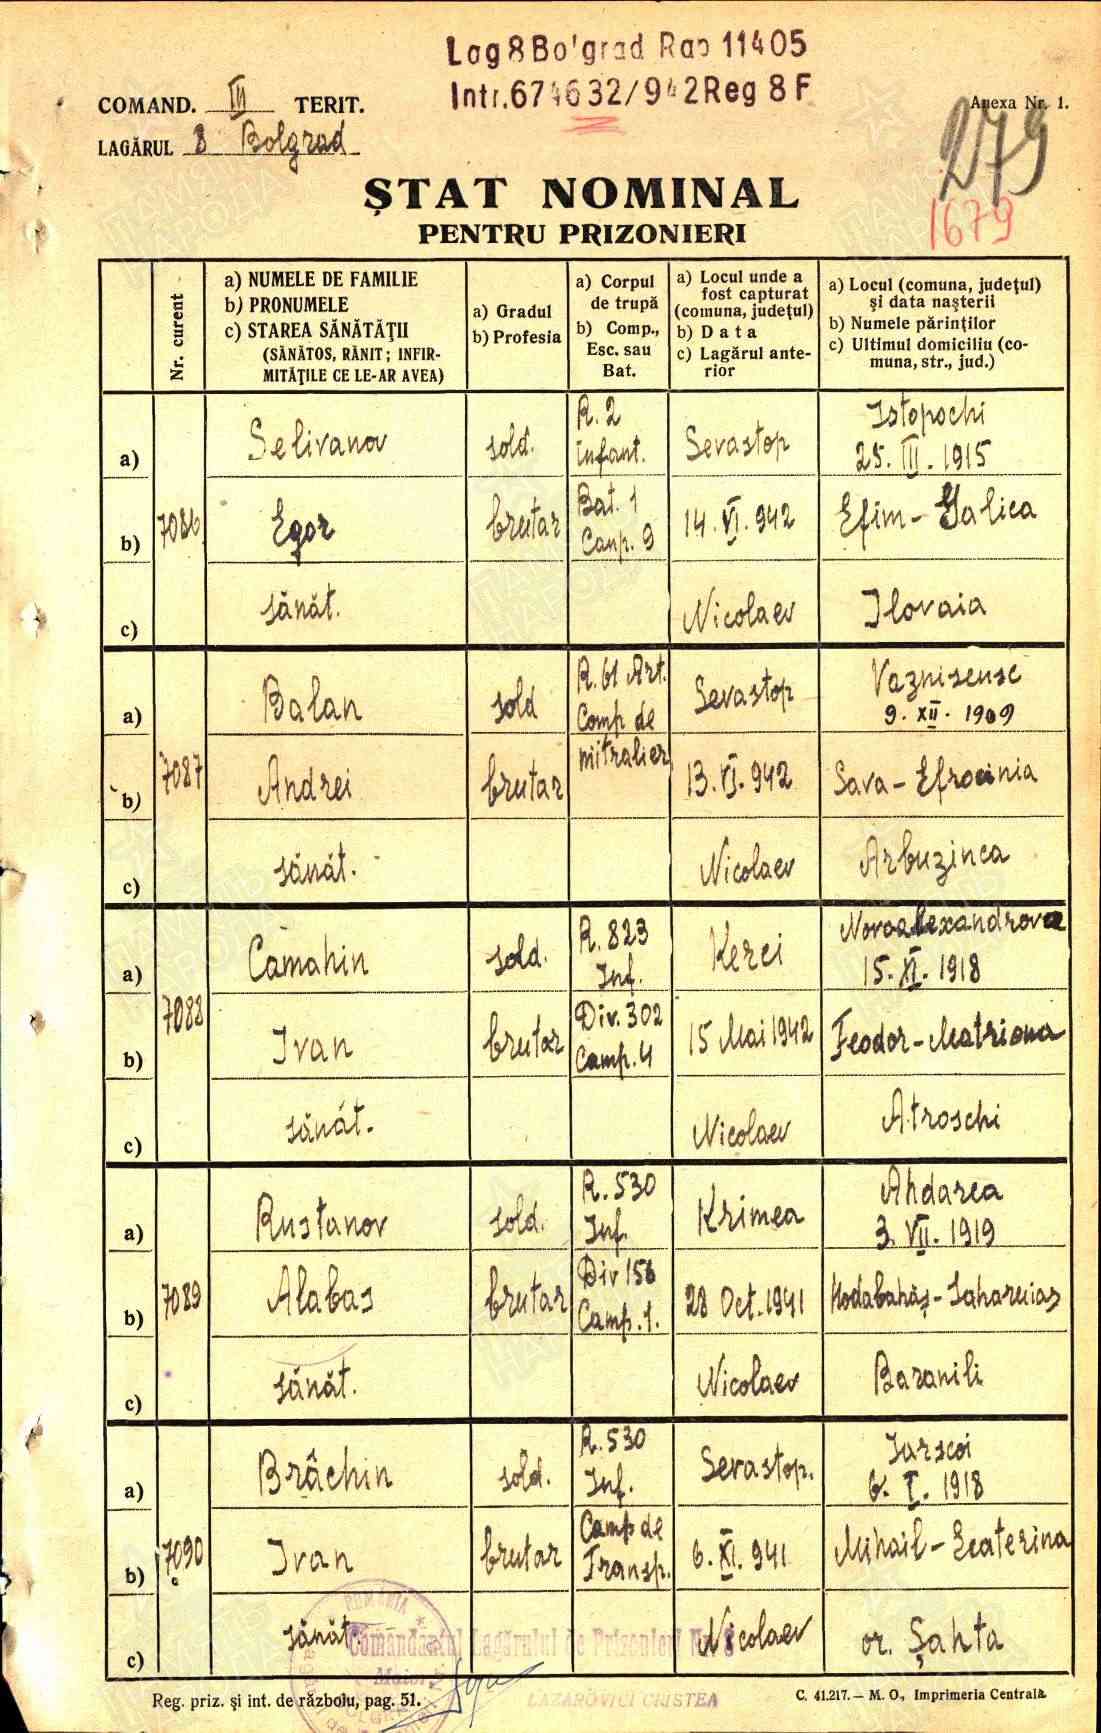 Lag 8 Bolgrad Rap 11405
Intr. 674632/942 Reg 8 F
COMAND. III TERIT.
Anexa Nr. 1.
LAGĂRUL 8 Bolgrad
279
1679
ȘTAT NOMINAL
PENTRU PRIZONIERI
Nr. curent
a) NUMELE DE FAMILIE
b) PRONUMELE
c) STAREA SĂNĂTĂȚII
(SĂNĂTOS, RĂNIT; INFIR-
MITĂȚILE CE LE-AR AVEA)
a) Gradul
b) Profesia
a) Corpul
de trupă
b) Comp.,
Esc. sau
Bat.
a) Locul unde a
fost capturat
(comuna, județul)
b) Data
c) Lagărul ante-
rior
a) Locul (comuna, județul)
și data nașterii
b) Numele părinților
c) Ultimul domiciliu (co-
muna, str., jud.)
7086
a) Selivanov sold. R. 2 Infant. Sevastop Istopochi 25. III. 1915
b) Egor brutar Bat. 1 Canp. 9 14. VI. 942 Efim - Galica
c) sănăt. Nicolaev Ilovaia
7087
a) Balan sold R. 61 Art. Comp de mitralier Sevastop Vaznisensc 9. XII. 1909
b) Andrei brutar 13. VI. 942 Sava - Efrocinia
c) sănăt. Nicolaev Arbuzinca
7088
a) Camahin sold. R. 823 Inf. Kerci Novoalexandrovca 15. XI. 1918
b) Ivan brutar Div. 302 Camp. 4 15 Mai 1942 Feodor - Matriona
c) sănăt. Nicolaev Atroschi
7089
a) Rustanov sold. R. 530 Inf. Krimea Ahdarea 3. VII. 1919
b) Alabas brutar Div 156 Camp. 1. 28 Oct. 1941 Hodabahăș -
c) sănăt. Nicolaev Baranili
7090
a) Brâchin sold. R. 530 Inf. Sevastop. Iarscoi 6. I. 1918
b) Ivan brutar Camp de Transp. 6. XI. 941 Mihail - Ecaterina
c) sănăt. Nicolaev or. Șahta
ROMÂNIA
Comandantul Lagărului de Prizonieri Nr. 8
Maior
LAZAROVICI CRISTEA
Reg. priz. și int. de războiu, pag. 51.
C. 41.217. — M. O., Imprimeria Centrală.
ПАМЯТЬ
НАРОДА